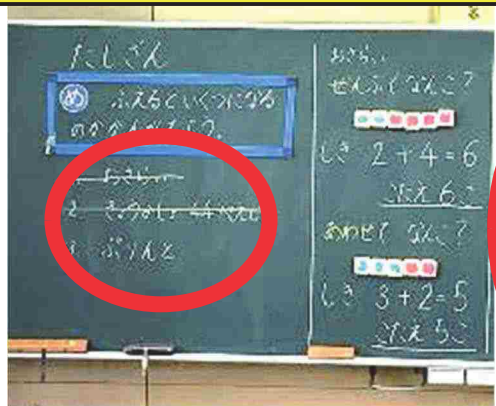 たしざん
め ふえるといくつになる
のかかんがえよう。
1 おさらい
2
3 ぷりんと
おさらい
ぜんぶでなんこ?
しき 2+4=6
こたえ 6こ
あわせて なんこ?
しき 3+2=5
こたえ 5こ